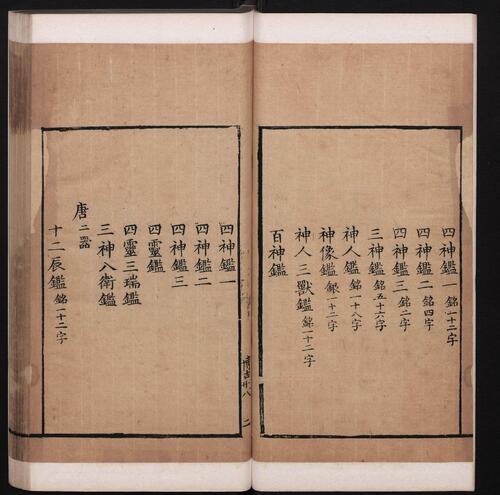 四神鑑一 銘一十二字
四神鑑二 銘四字
四神鑑三 銘二字
三神鑑 銘五十六字
神人鑑 銘一十八字
神像鑑 銀一十二字
神人三獸鑑 銘一十二字
百神鑑
博古廿八 二
四神鑑一
四神鑑二
四神鑑三
四靈鑑
四靈三瑞鑑
三神八衛鑑
唐 二器
十二辰鑑 銘一十二字